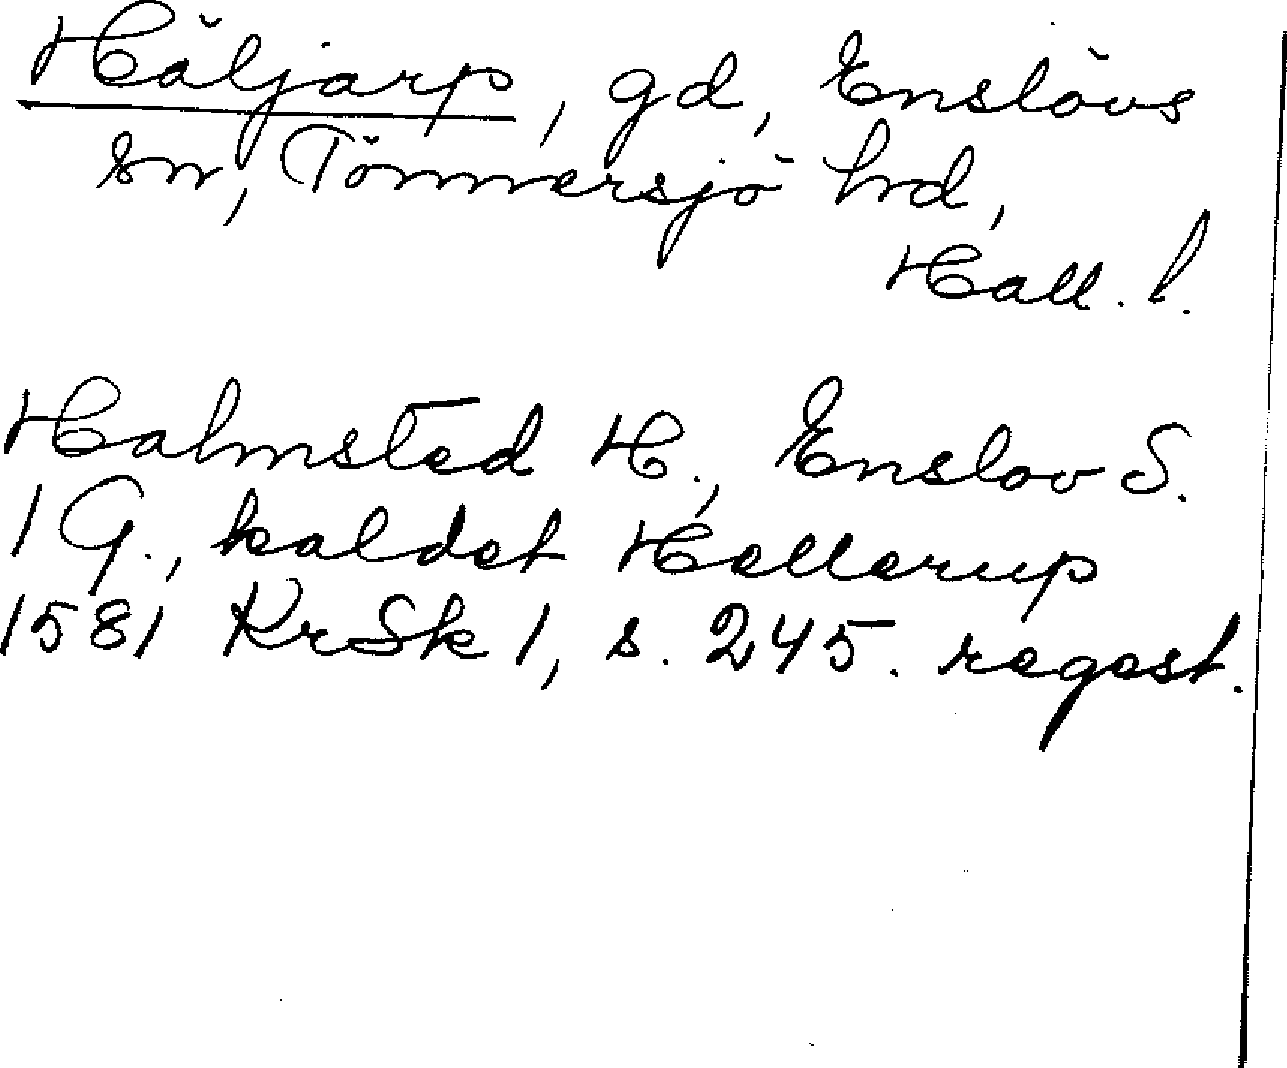 Häljarp, gd, Enslövs
sn, Tönnersjö hd,
Hall. l.
Halmsted H., Enslov S.
1 G., kaldet Hellerup
1581 KrSk 1, s. 245. regest.